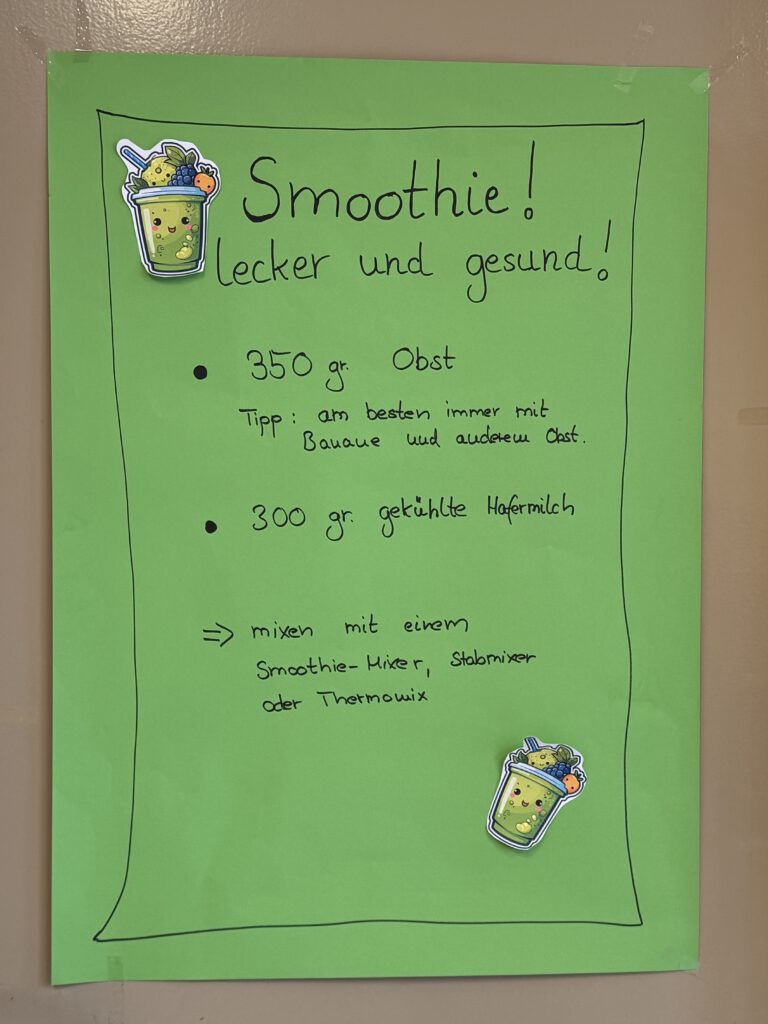 Smoothie!
lecker und gesund!
• 350 gr. Obst
Tipp: am besten immer mit
Banane und anderem Obst.
• 300 gr. gekühlte Hafermilch
⇒ mixen mit einem
Smoothie-Mixer, Stabmixer
oder Thermomix